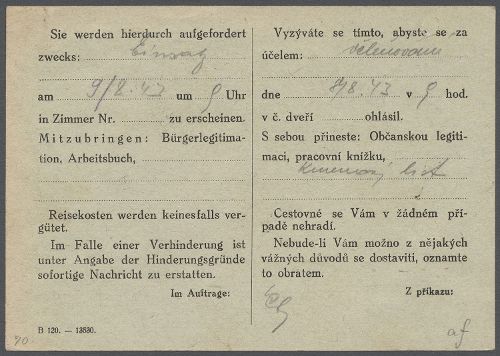 Sie werden hierdurch aufgefordert
zwecks: Einsatz
am 9/8.43 um 9 Uhr
in Zimmer Nr. zu erscheinen.
Mitzubringen: Bürgerlegitima-
tion, Arbeitsbuch,
Reisekosten werden keinesfalls ver-
gütet.
Im Falle einer Verhinderung ist
unter Angabe der Hinderungsgründe
sofortige Nachricht zu erstatten.
Im Auftrage:
B 120. — 13530.
Vyzýváte se tímto, abyste se za
účelem:
dne 9/8.43 v 9 hod.
v č. dveří ohlásil.
S sebou přineste: Občanskou legiti-
maci, pracovní knížku,
kmenový list
Cestovné se Vám v žádném pří-
padě nehradí.
Nebude-li Vám možno z nějakých
vážných důvodů se dostaviti, oznamte
to obratem.
Z příkazu: